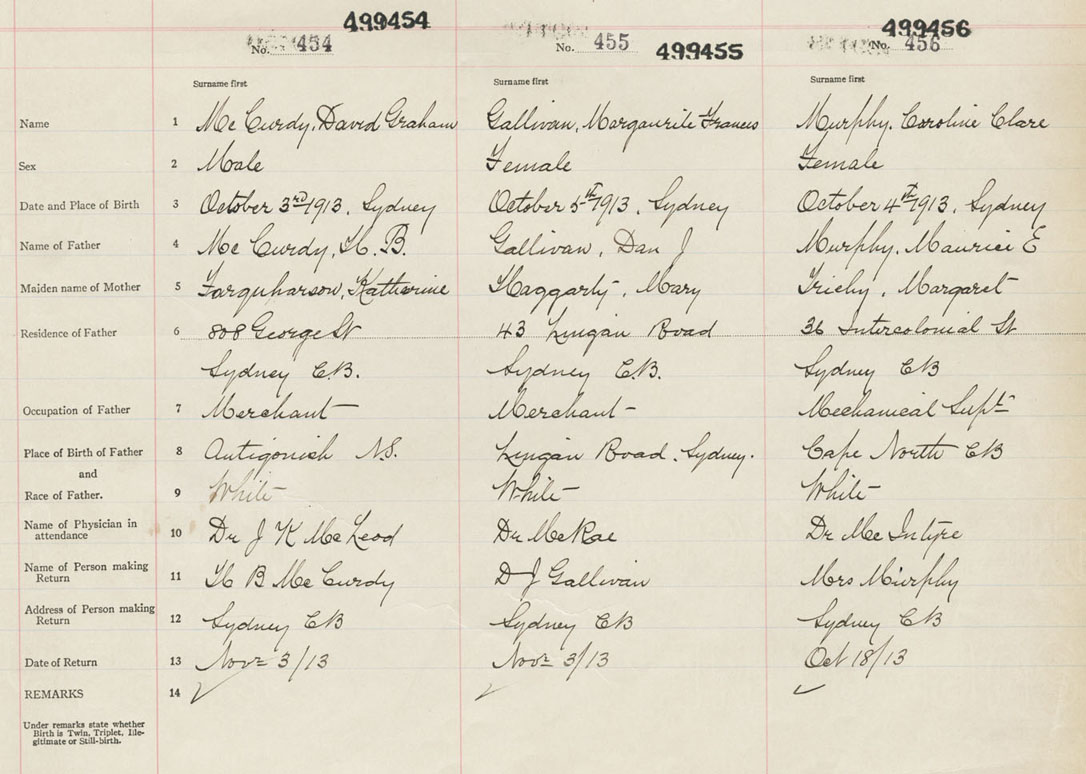 499454 499456
No. 454 No. 455 499455 No. 456
Surname first Surname first Surname first
Name 1 Mc Curdy, David Graham Gallivan, Margaurite Francis Murphy, Caroline Clare
Sex 2 Male Female Female
Date and Place of Birth 3 October 3rd 1913, Sydney October 5th 1913, Sydney October 4th 1913, Sydney
Name of Father 4 Mc Curdy, H. B. Gallivan, Dan J Murphy, Maurice E
Maiden name of Mother 5 Farquharson, Katherine Haggarty, Mary Margaret
Residence of Father 6 808 George St 43 Lingan Road 36 Intercolonial St
Sydney C.B. Sydney C.B. Sydney CB
Occupation of Father 7 Merchant Merchant Mechanical Supt
Place of Birth of Father 8 Antigonish N.S. Lingan Road, Sydney. Cape North CB
and
Race of Father. 9 White White White
Name of Physician in
attendance 10 Dr J K McLeod Dr McRae Dr Mc Intyre
Name of Person making
Return 11 H B McCurdy D J Gallivan Mrs Murphy
Address of Person making
Return 12 Sydney CB Sydney CB Sydney CB
Date of Return 13 Novr 3/13 Novr 3/13 Oct 18/13
REMARKS 14
Under remarks state whether
Birth is Twin, Triplet, Ille-
gitimate or Still-birth.